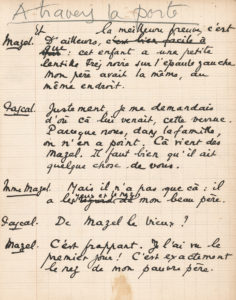 A travers la porte
Et la meilleure preuve, c'est
Mazel. D'ailleurs, c'est bien facile à
cet enfant a une petite
lentille très noire sur l'épaule gauche
Mon père avait la même, au
même endroit.
Pascal. Justement, je me demandais
d'où ça lui venait, cette verrue.
Parceque nous, dans la famille,
on n'en a point. Ça vient des
Mazel. Il faut bien qu'il ait
quelque chose de vous.
Mme Mazel. Mais il n'a pas que ça : il
yeux et le nez
a les de mon beau père.
Pascal. De Mazel le vieux ?
Mazel. C'est frappant. Je l'ai vu le
premier jour ! C'est exactement
le nez de mon pauvre père.